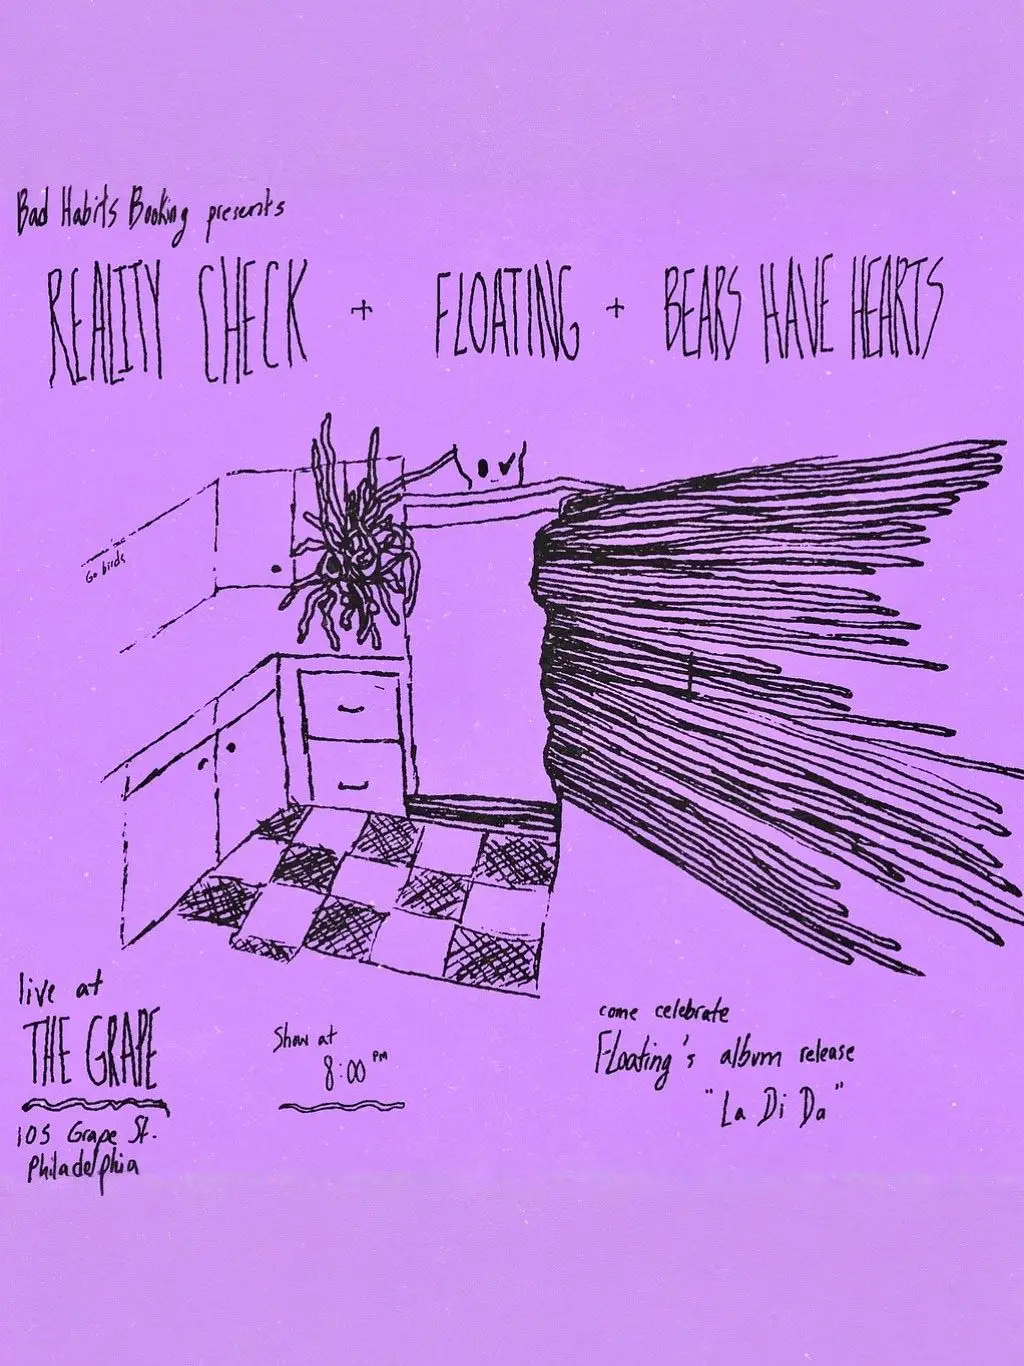 Bad Habits Booking presents
REALITY CHECK + FLOATING + BEARS HAVE HEARTS
Go birds
live at
THE GRAPE
105 Grape St.
Philadelphia
Show at
8:00 PM
come celebrate
Floating's album release
"La Di Da"